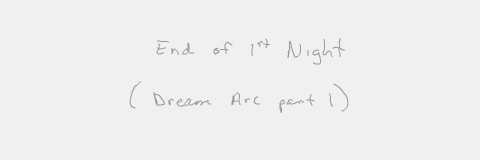 End of 1st Night
(Dream Arc part 1)